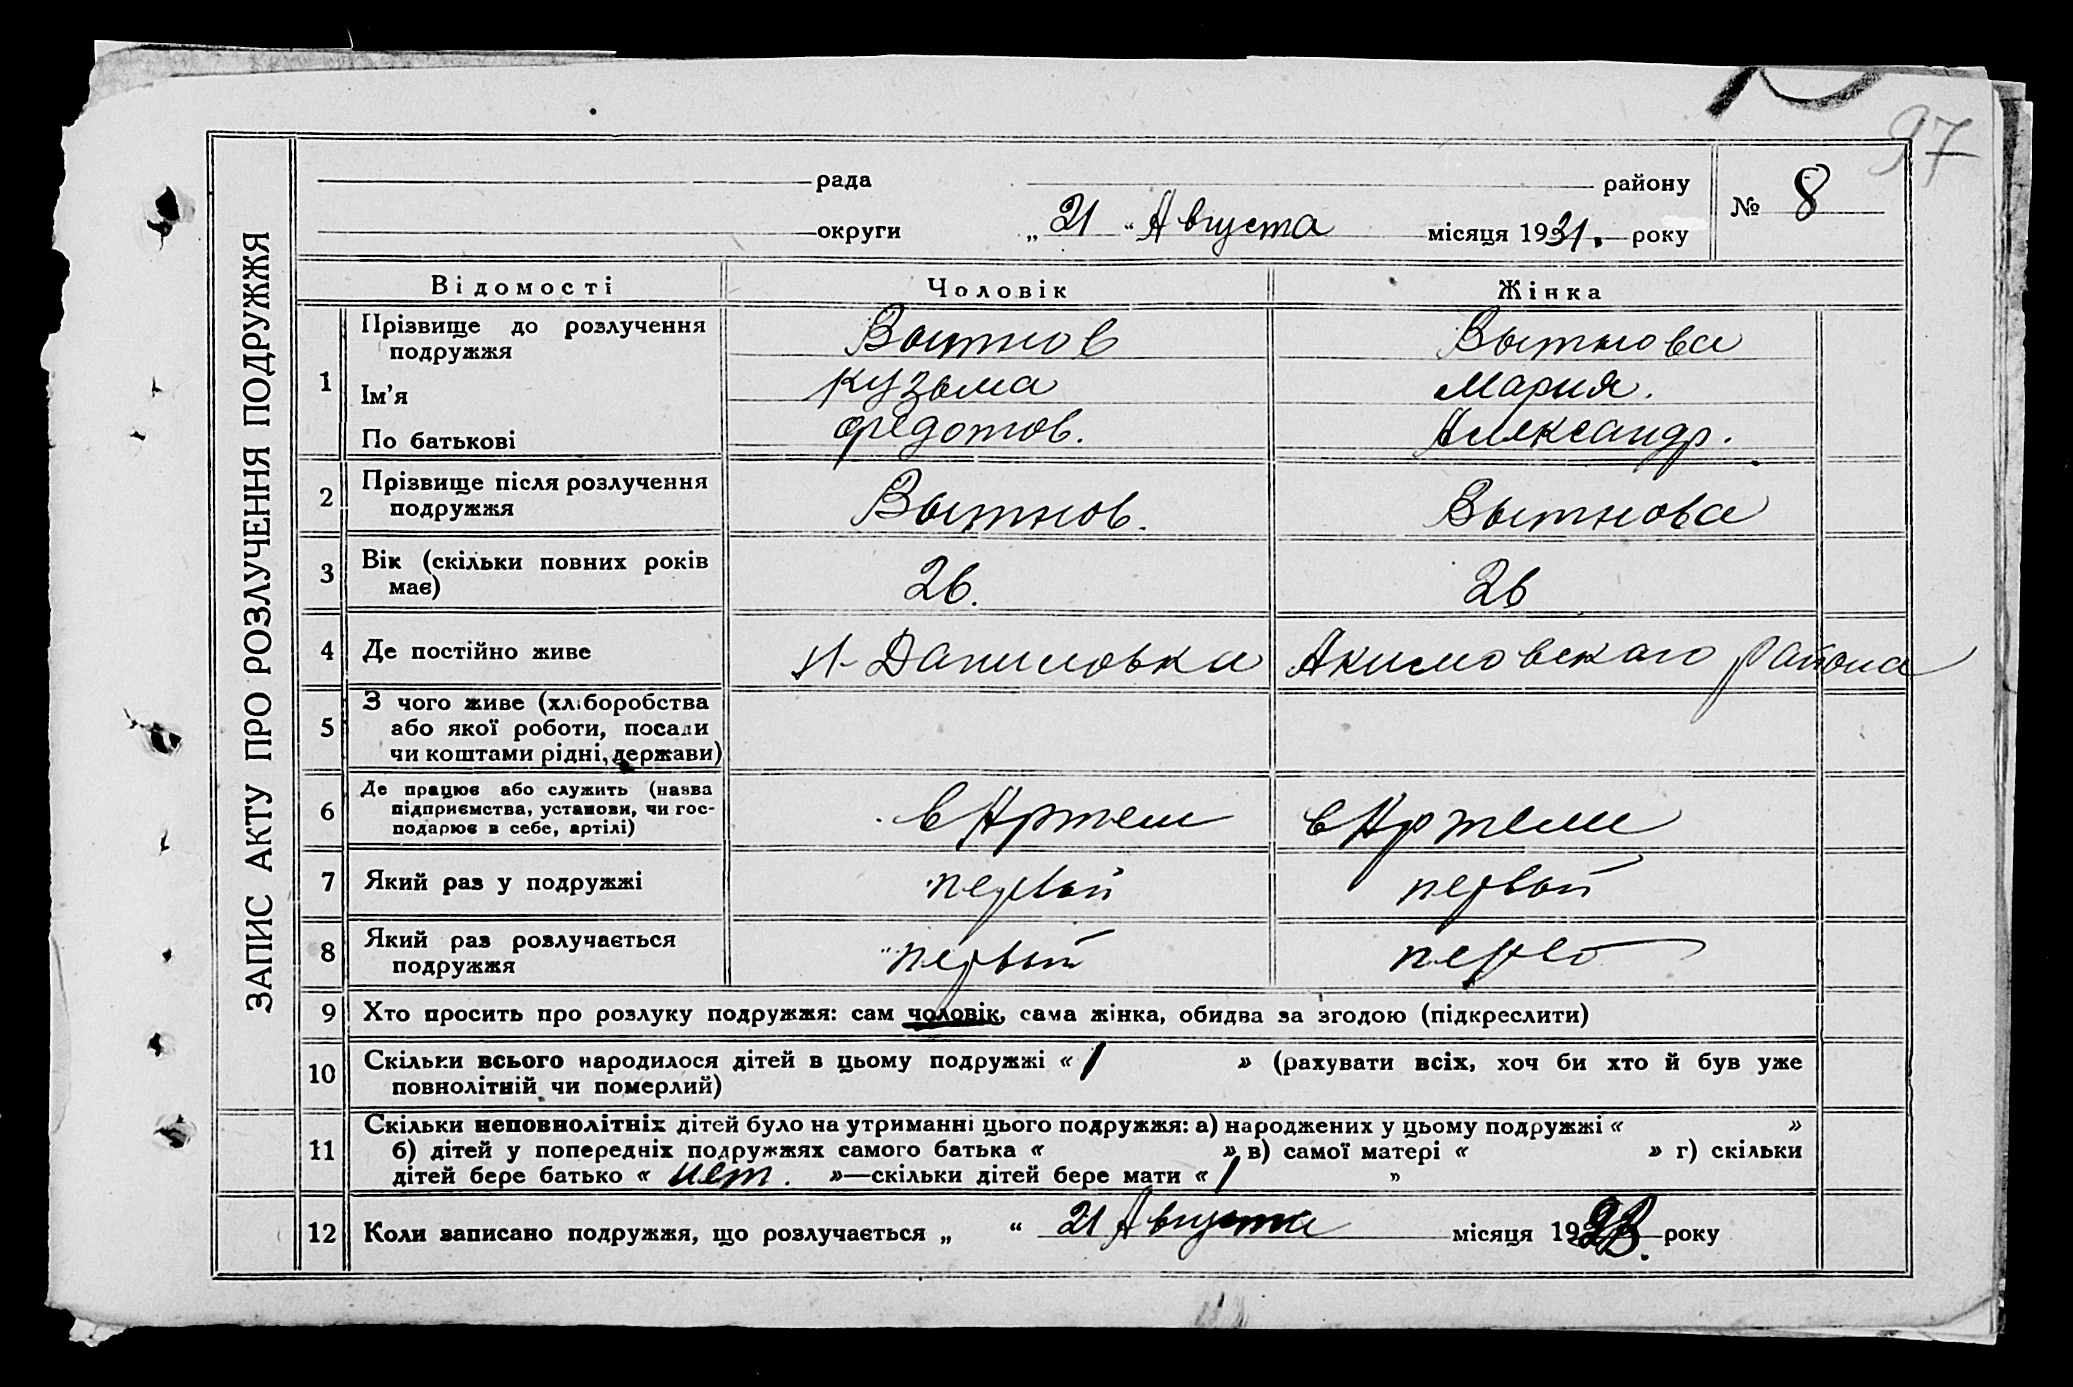 97
ЗАПИС АКТУ ПРО РОЗЛУЧЕННЯ ПОДРУЖЖЯ
рада району
№ 8
округи „ 21 “ Августа місяця 1931. року
Відомості Чоловік Жінка
1 Прізвище до розлучення подружжя Вытнов Вытнова
Ім’я Кузьма Мария.
По батькові Федотов. Александр.
2 Прізвище після розлучення подружжя Вытнов. Вытнова
3 Вік (скільки повних років має) 26. 26
4 Де постійно живе Н-Даниловка Акимовскаго района
5 З чого живе (хліборобства або якої роботи, посади чи коштами рідні, держави)
6 Де працює або служить (назва підприємства, установи, чи господарює в себе, артілі) в Артели в Артели
7 Який раз у подружжі первый первый
8 Який раз розлучається подружжя первый
9 Хто просить про розлуку подружжя: сам чоловік, сама жінка, обидва за згодою (підкреслити)
10 Скільки всього народилося дітей в цьому подружжі « 1 » (рахувати всіх, хоч би хто й був уже
повнолітній чи померлий)
11 Скільки неповнолітніх дітей було на утриманні цього подружжя: а) народжених у цьому подружжі « »
б) дітей у попередніх подружжях самого батька « » в) самої матері « » г) скільки
дітей бере батько « нет. »—скільки дітей бере мати « 1 »
12 Коли записано подружжя, що розлучається „ “ 21 Августа місяця 19 року